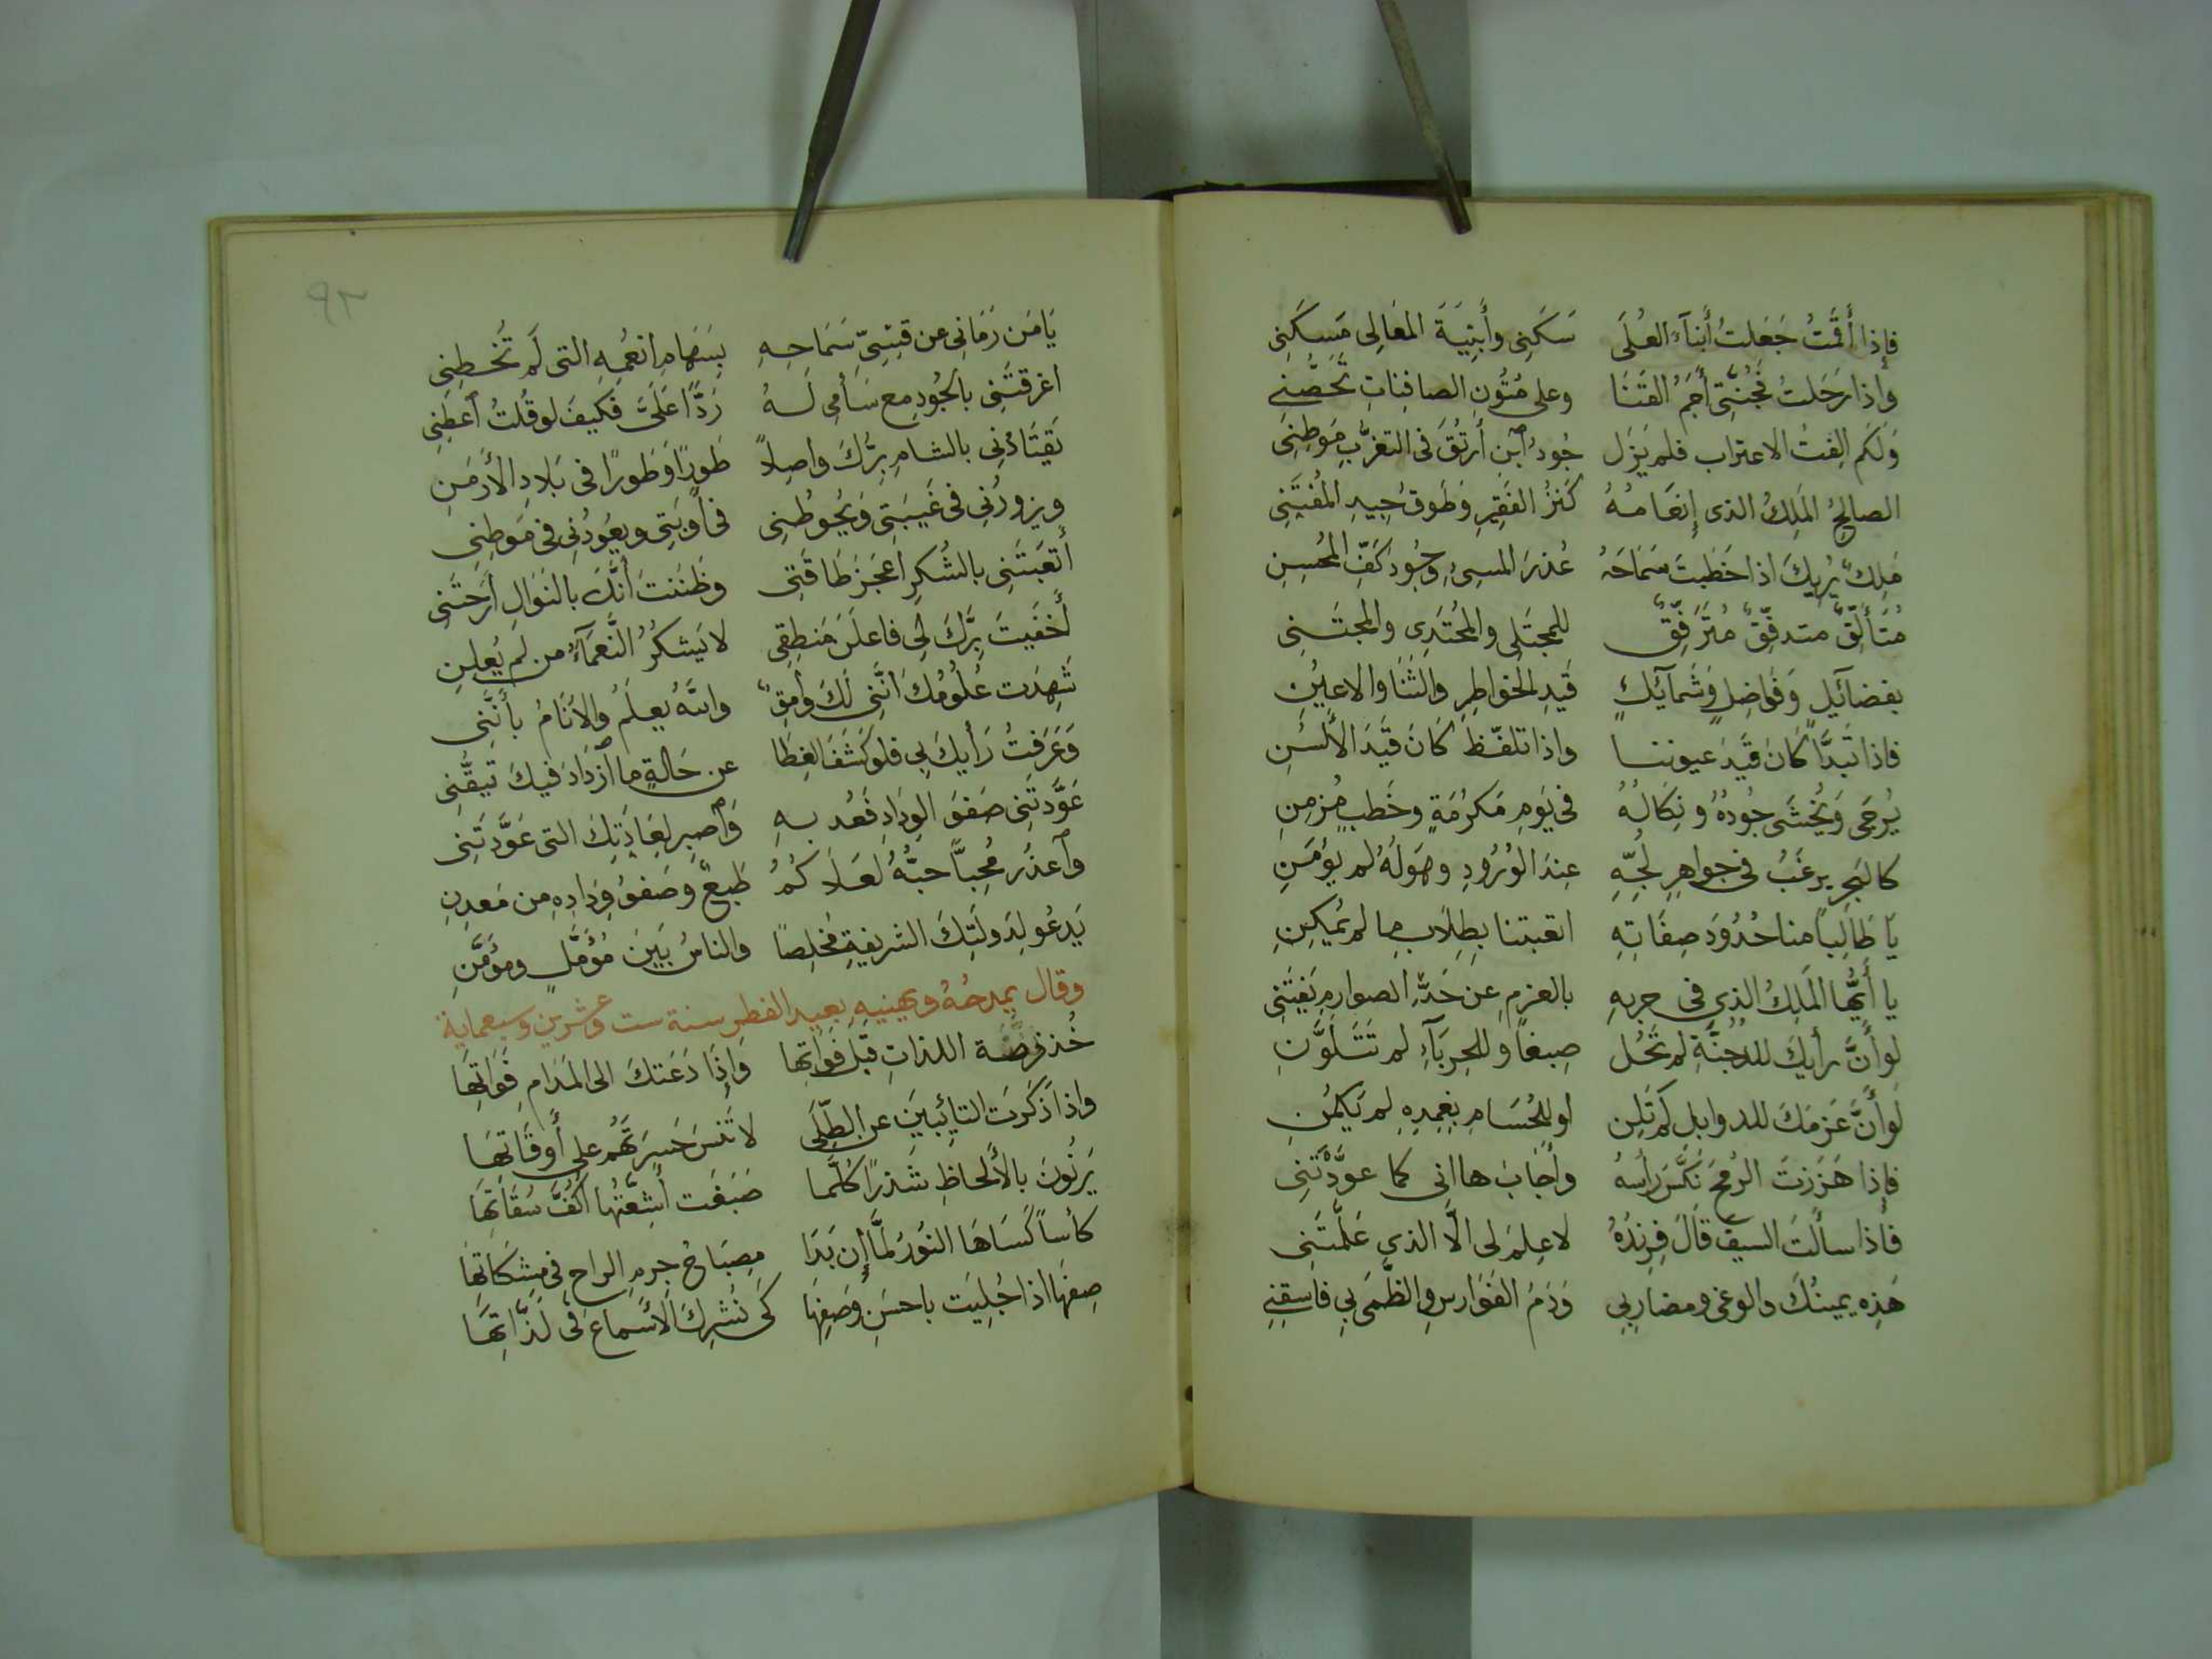 فإذا أَقَمْتُ جَعَلتُ أَبنآءَ العُلَى سَكَنِى وأَبنِيَةَ المَعَالِى مَسكَنِى
وإذا رَحَلتُ فَجُنَّتِى أَجَمُ القَنَا وعلى مُتُونِ الصافِناتِ تَحَصُّنِى
وَلَكَم الِفتُ الاغتراب فلم يَزَل جُودُ ٱبن أُرتُقَ فى التغرُّبِ مَوطِنِى
الصالحُ المَلِكُ الذى إِنعَامُهُ كَنزُ الفَقِيرِ وَطَوقُ جِيدِ المُغتَنِى
مَلِكٌ يُرِيكَ اذا خَطَبتَ سَمَاحَهُ عُذرَ المسىءِ وجُودَ كَفِّ المُحسِنِ
مُتَأَلِّقٌ متدفِّقٌ مُتَرَفِّقٌ للمجتَلى والمُجتَدِى والمجتَنِى
بفضآئلٍ وَفَواضِلٍ وَشَمآئلٍ قَيدِ الخواطِرِ والثَنَا والاعيُنِ
فاذا تَبَدَّا كَانَ قَيَدَ عيوننا واذا تلفّظَ كَانَ قَيَدَ الأَلسُنِ
يُرجَى وَيُخشَى جُودُهُ ونِكَالُهُ فى يَومِ مَكرُمَةٍ وخَطبٍ مُزمِنِ
كالبَحرِ يرغَبُ فى جواهِرِ لُجِّهِ عِندَ الوُرُودِ وهَولُهُ لم يُؤمَنِ
يَا طَالِباً منا حُدُودَ صِفَاتِهِ اتعبتنا بِطِلَابِ ما لم يُمكِنِ
يا أَيُّها المَلِكُ الذِى فى حربهِ بالعزمِ عن حَدِّ الصوارمِ يَغتَنِى
لَو أَنَّ رأيكَ للدجنَّةِ لم تَحُل صِبغاً وللحِربَآءِ لم تَتَلَوَّنِ
لَو أَنَّ عَزمَكَ للدوابل لم تَلِن او للحُسَامِ بغِمدِهِ لم يَكمُنِ
فإذا هَزَزتَ الرُمحَ نَكَّسَ رأسَهُ وأَجَابَ ها انى كما عوَّدتَنِى
فأذا سالتَ السيفَ قَالَ فِرِندُهُ لا عِلمَ لى الَّا الذى عَلَّمتَنِى
هَذِه يمينُكَ والوغى ومضاربِى وَدَمُ الفَوَارسِ والظَّمَى بِى فاسقِنِى
٩٣
يَا مَن رَمَانِى عن قِسِىِّ سَمَاحِهِ بِسَهَامِ انعُمِهِ التى لَم تُخطِنِى
اغرقتَنِى بالجُودِ مع سَأمِى لَهُ رَدًّا عَلَىَّ فكيفَ لو قُلتُ ٱعطِنِى
يَقتَادُنِى بالشامِ بِرُّكَ واصِلاً طَورًا وَطَورًا فى بَلادِ الأَرمَنِ
ويزورُنِى فى غَيبَتِى وَيحُوطُنِى فى أَوبَتِى ويعُودُنِى فى مَوطِنِى
أتعَبتَنِى بالشُكرِ اعجَزَ طَاقَتِى وظَنَنتَ أَنَّكَ بالنَوَالِ أَرَحتَنِى
أَخفَيتَ بِرَّكَ لِى فاعلَنَ مَنطِقِى لا يَشكُرُ النَّعمَآءَ من لَم يُعلِنِ
شَهِدَت عُلُومُكَ انَّنِى لَكَ وامِقٌ واللهُ يعلَمُ والأَنَامُ بأَنَّنِى
وَعَرَفتُ رَأيكَ بِى فلو كَشَفَ الغِطَا عن حَالةٍ ما ٱزدَادَ فيكَ تيقُّنِى
عَوَّدتَنِى صَفوَ الوِدَادِ فَعُد بهِ وَٱصبِر لِعَادَتِكَ التى عَوَّدتَنِى
وٱعذُر مُحِبًّا حبُّهُ لعَلَاكُمُ طَبعٌ وصَفوُ وِدَادِهِ من مَعدِنِ
يَدعُو لِدَولَتِكَ الشريفةِ مُخلِصًا والناسُ بَينَ مُؤَمِّلٍ ومؤَمِّنِ
وقال يمدحُهُ ويهنيهِ بعيد الفطر سنة ست وعشرين وسبعماية
خُذ فرصَّة اللذاتِ قبلَ فَوَاتِها وَإذَا دَعَتكَ الى المُدَامِ فَوَاتِهَا
واذا ذَكَرتَ التائِبينَ عن الطِّلَى لا تَنسَ حَسرَتَهُم على أَوقَاتِهَا
يَرنُونَ بالأَلحاظِ شَذرًا كُلَّما صَبَغَت أَشِعَّتُها اكُفَّ سُقَاتِهَا
كأساً كَسَاهَا النُورُ لمَّا إن بَدَا مِصبَاحُ جرمِ الراحِ فى مِشكَاتِهَا
صِفهَا اذا جُلِيَت باحسَنِ وَصَفِهَا كَى نُشرِكَ الأَسماعَ فى لَذَّاتِهَا